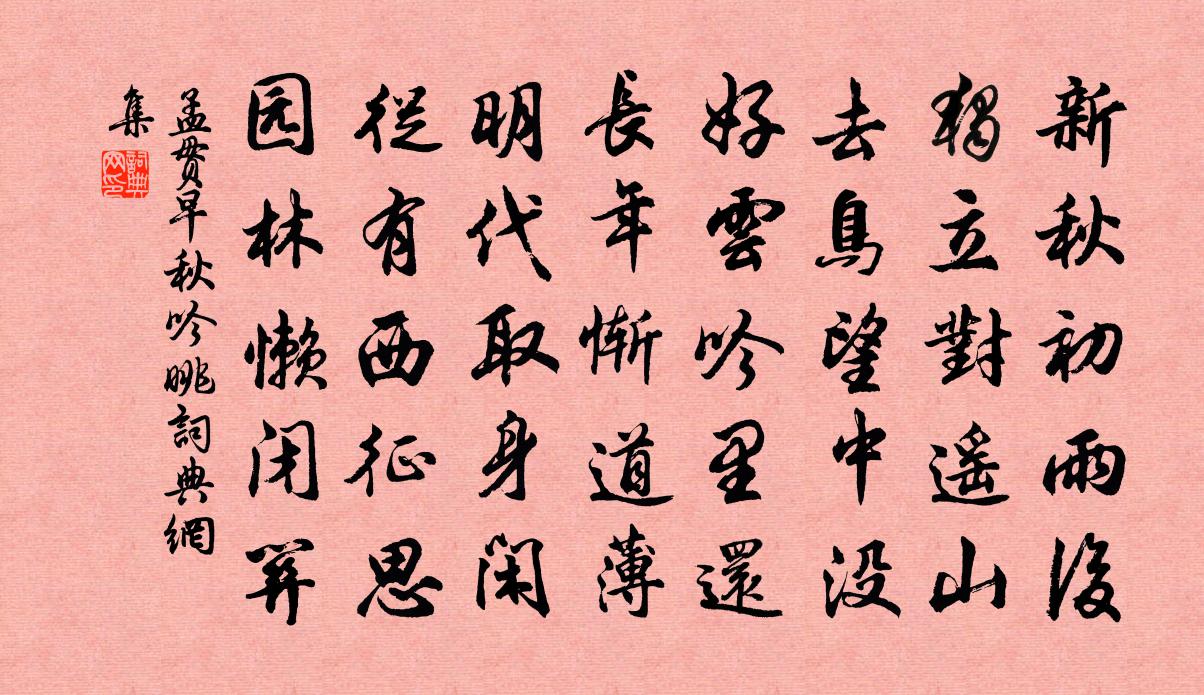 新秋初雨後
獨立對遙山
去鳥望中没
好雲吟里還
長年慚道薄
明代取身闲
從有西征思
园林懒闭关
孟貫早秋吟眺詞典網
集
詞典
网印